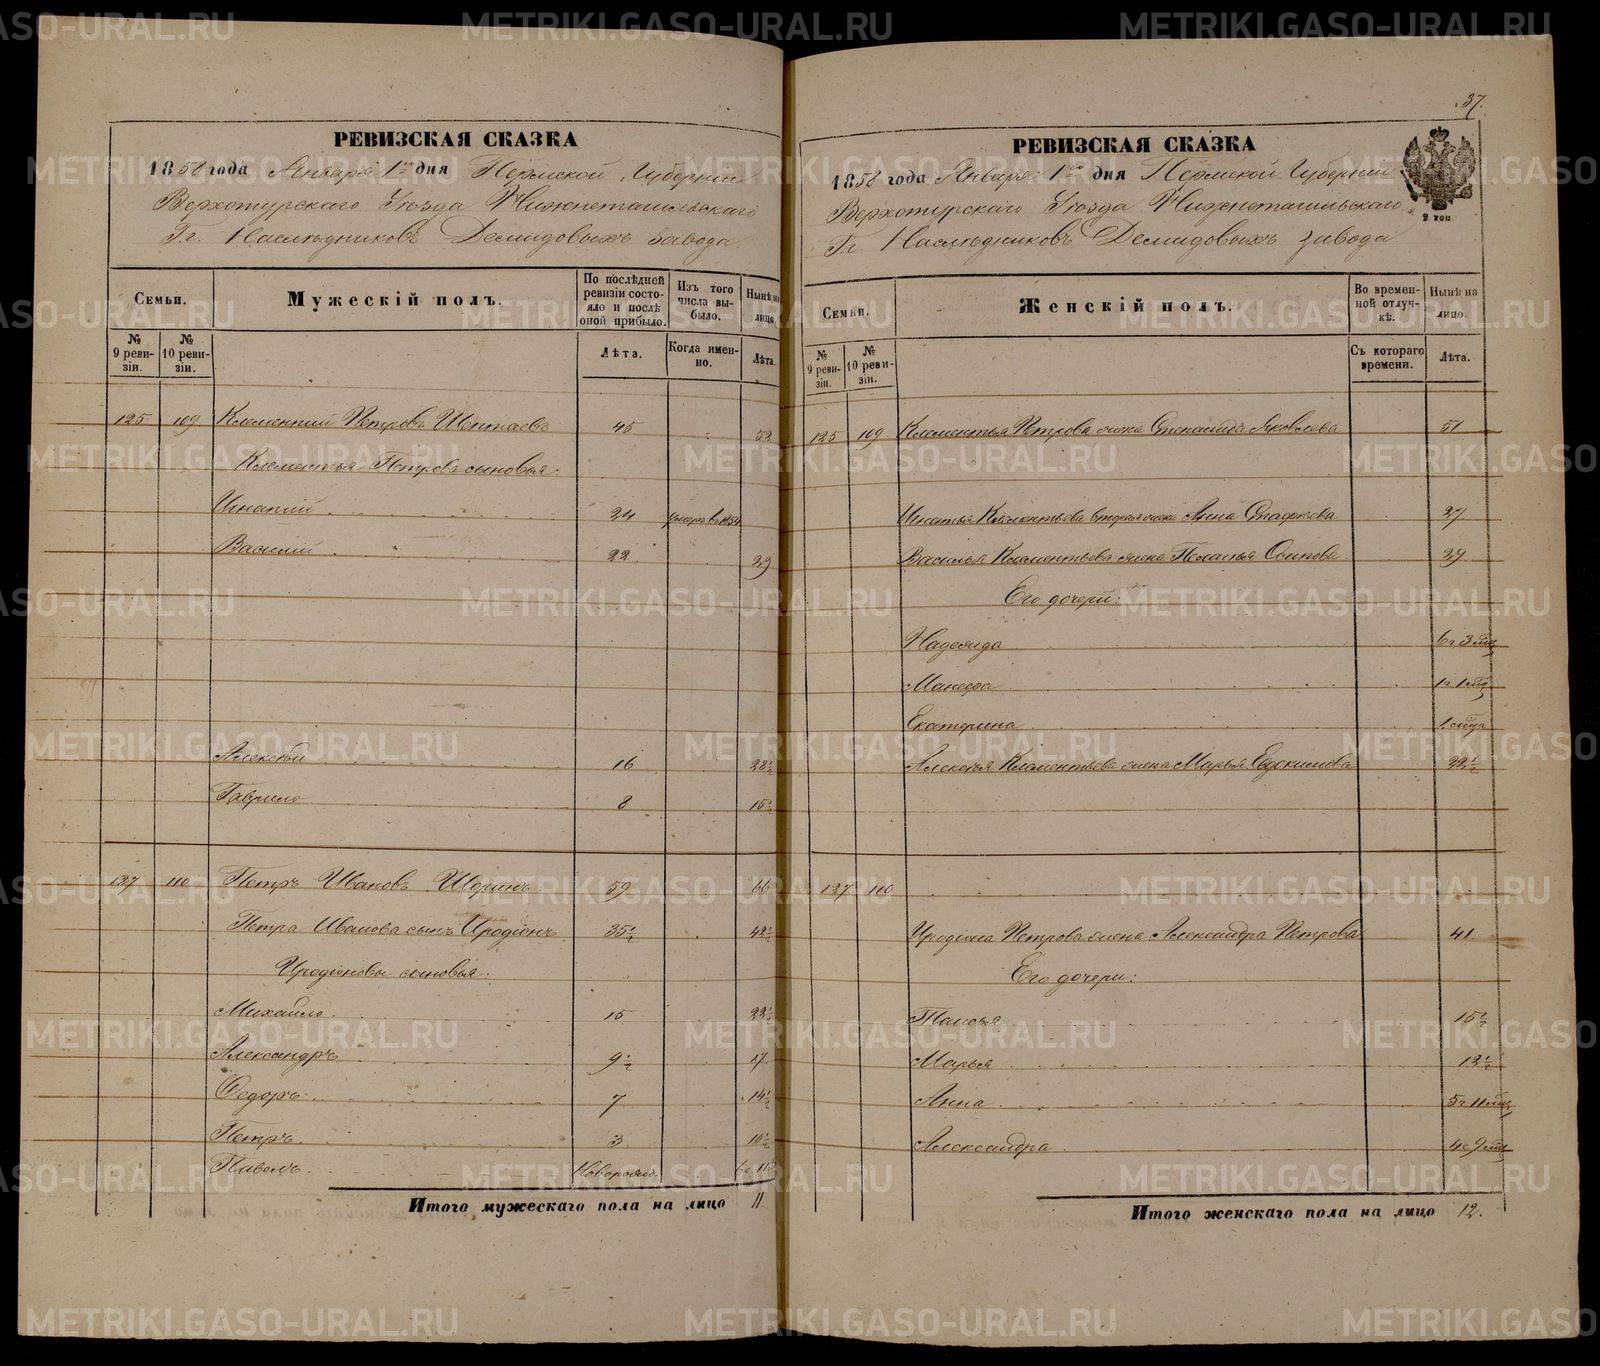 37.
РЕВИЗСКАЯ СКАЗКА
1858 года Января 1го дня Пермской Губернии
Верхотурского Уезда Нижнетагильскаго
Гг. Наследниковъ Демидовыхъ завода
Семьи.
Мужескій полъ.
По послѣдней ревизіи состояло и послѣ оной прибыло.
Изъ того числа выбыло.
Нынѣ на лицо.
№ 9 ревизіи.
№ 10 ревизіи.
Лѣта.
Когда именно.
Лѣта.
125 109 Климентий Петровъ Шептаевъ 45 52
Климентья Петрова сыновья:
Игнатий 24 умеръ в 1854
Василий 22 29
Алексѣй 16 22½
Гаврило 8 15½
137 110 Петръ Ивановъ 59 66
Петра Иванова сынъ Иродіонъ 35½ 42½
Иродіоновы сыновья:
Михайло 15 22½
Александръ 9½ 17
Федоръ 7 14½
Петръ 3 10½
Павелъ Новорожд.
Итого мужескаго пола на лицо 11
РЕВИЗСКАЯ СКАЗКА
1858 года Января 1го дня Пермской Губернии
Верхотурскаго Уезда Нижнетагильскаго
Гг. Наследниковъ Демидовыхъ завода
2 коп.
Семьи.
Женскій полъ.
Во временной отлучкѣ.
Нынѣ на лицо.
№ 9 ревизіи.
№ 10 ревизіи.
Съ котораго времени.
Лѣта.
125 109 Климентья Петрова жена Степанида Яковлева 51
Игнатья Климентьева вторая жена Анна 27
Василья Климентьева жена Пелагья Осипова 29
Его дочери:
Надежда 6 г 3 мц
Манефа 1 г 1 мц
Екатерина 1 мца
Алексѣя Климентьева жена Марья Евдокимова 22½
137 110
Иродіона Петрова жена Александра Петрова 41
Его дочери:
Таисья 15½
Марья 12½
Анна 5 г 11 мц
Александра 4 г 9 мц
Итого женскаго пола на лицо 12.
METRIKI.GASO-URAL.RU